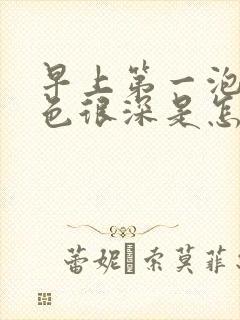 早上第一泡
色很深是怎
蕾妮·索莫菲